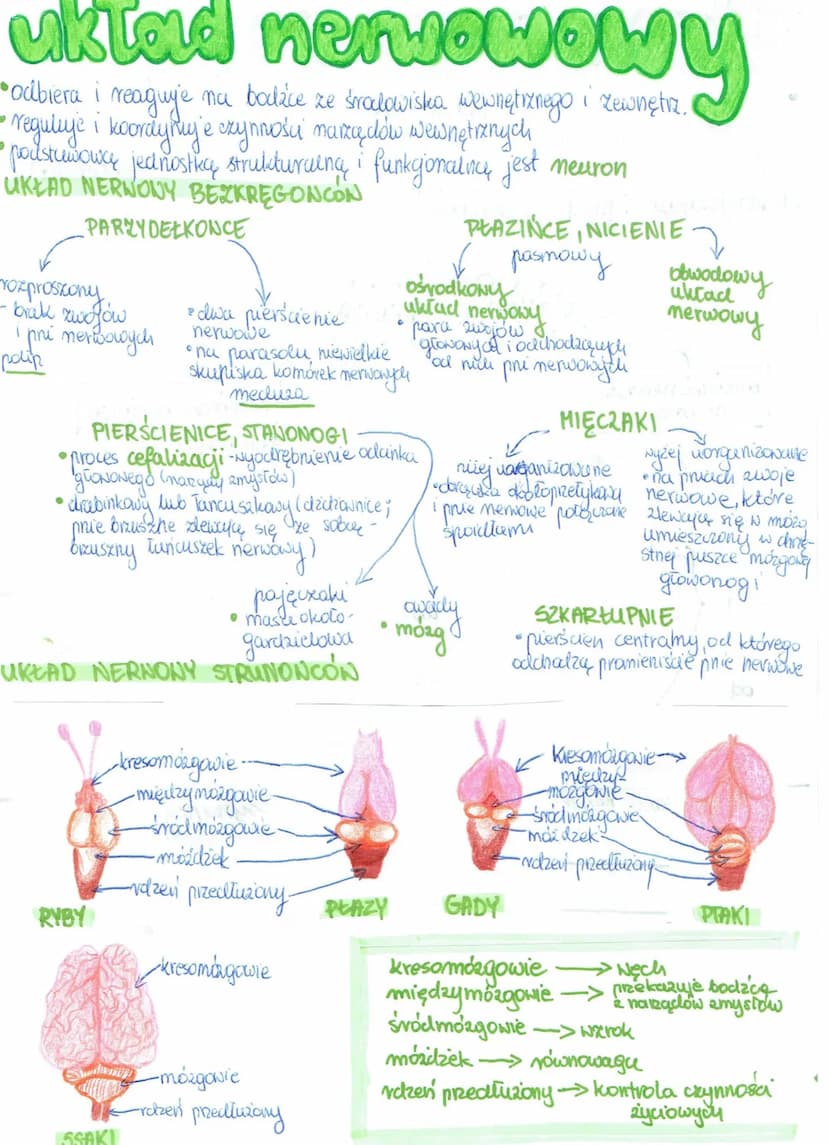 układ nerwowowy
• odbiera i reaguje na bodźce ze środowiska wewnętrznego i zewnętrz.
• reguluje i koordynuje czynności narządów wewnętrznych
• podstawową jednostką strukturalną i funkcjonalną jest neuron
UKŁAD NERWOWY BEZKRĘGOWCÓW
PARZYDEŁKOWCE
rozproszony
- brak zwojów
i pni nerwowych
polip
• dwa pierścienie
nerwowe
• na parasolu niewielkie
skupiska komórek nerwowych
meduza
PŁAZIŃCE, NICIENIE
pasmowy
ośrodkowy
układ nerwowy
• para zwojów
głowowych i odchodzących
od nich pni nerwowych
obwodowy
układ
nerwowy
PIERŚCIENICE, STAWONOGI
• proces cefalizacji - wyodrębnienie odcinka
głowowego (narządy zmysłów)
• drabinkowy lub łańcuszkowy (dżdżownice;
pnie brzuszne zlewają się ze sobą -
brzuszny łańcuszek nerwowy)
pajęczaki
• masa około-
gardzielowa
owady
• mózg
MIĘCZAKI
niżej uorganizowane
• obrączka okołoprzełykowa
i pnie nerwowe połączone
spoidłami
wyżej uorganizowane
• na pniach zwoje
nerwowe, które
zlewają się w mózg
umieszczony w chrzę-
stnej puszce mózgowej
głowonogi
SZKARŁUPNIE
• pierścień centralny, od którego
odchodzą promieniście pnie nerwowe
UKŁAD NERWOWY STRUNOWCÓW
kresomózgowie
międzymózgowie
śródmózgowie
móżdżek
rdzeń przedłużony
RYBY
PŁAZY
kresomózgowie
między
mózgowie
śródmózgowie
móżdżek
rdzeń przedłużony
GADY
PTAKI
kresomózgowie
mózgowie
rdzeń przedłużony
SSAKI
kresomózgowie → węch
międzymózgowie → przekazuje bodźce
z narządów zmysłów
śródmózgowie → wzrok
móżdżek → równowaga
rdzeń przedłużony → kontrola czynności
życiowych